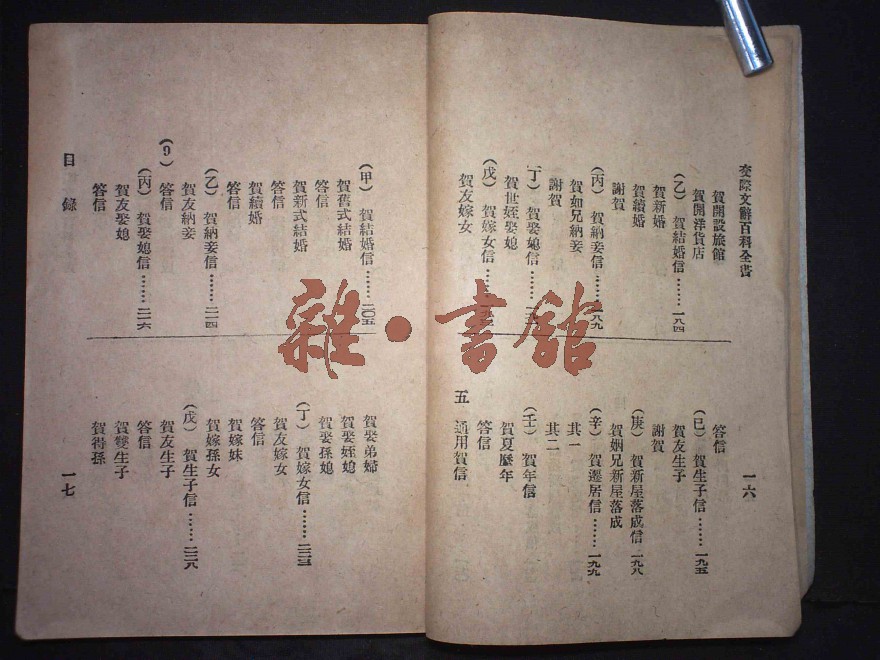 交際文辭百科全書
一六
賀開設旅館
賀開洋貨店
(乙) 賀結婚信……一八四
賀新婚
賀續婚
謝賀
(丙) 賀納妾信……一八九
賀如兄納妾
謝賀
(丁) 賀娶媳信
賀世姪娶媳
(戊) 賀嫁女信
賀友嫁女
答信
(己) 賀生子信……一九五
賀友生子
謝賀
(庚) 賀新屋落成信 一九八
賀姻兄新屋落成
(辛) 賀遷居信……一九九
其一
其二
(壬) 賀年信
賀夏曆年
答信
五 通用賀信
(甲) 賀結婚信……二〇五
賀舊式結婚
答信
賀新式結婚
答信
賀續婚
答信
(乙) 賀納妾信……二一四
賀友納妾
答信
(丙) 賀娶媳信……二一六
賀友娶媳
答信
賀娶弟婦
賀娶姪媳
賀娶孫媳
(丁) 賀嫁女信……二二三
賀友嫁女
答信
賀嫁妹
賀嫁孫女
(戊) 賀生子信……二二八
賀友生子
答信
賀雙生子
賀得孫
目錄
一七
雜·書館